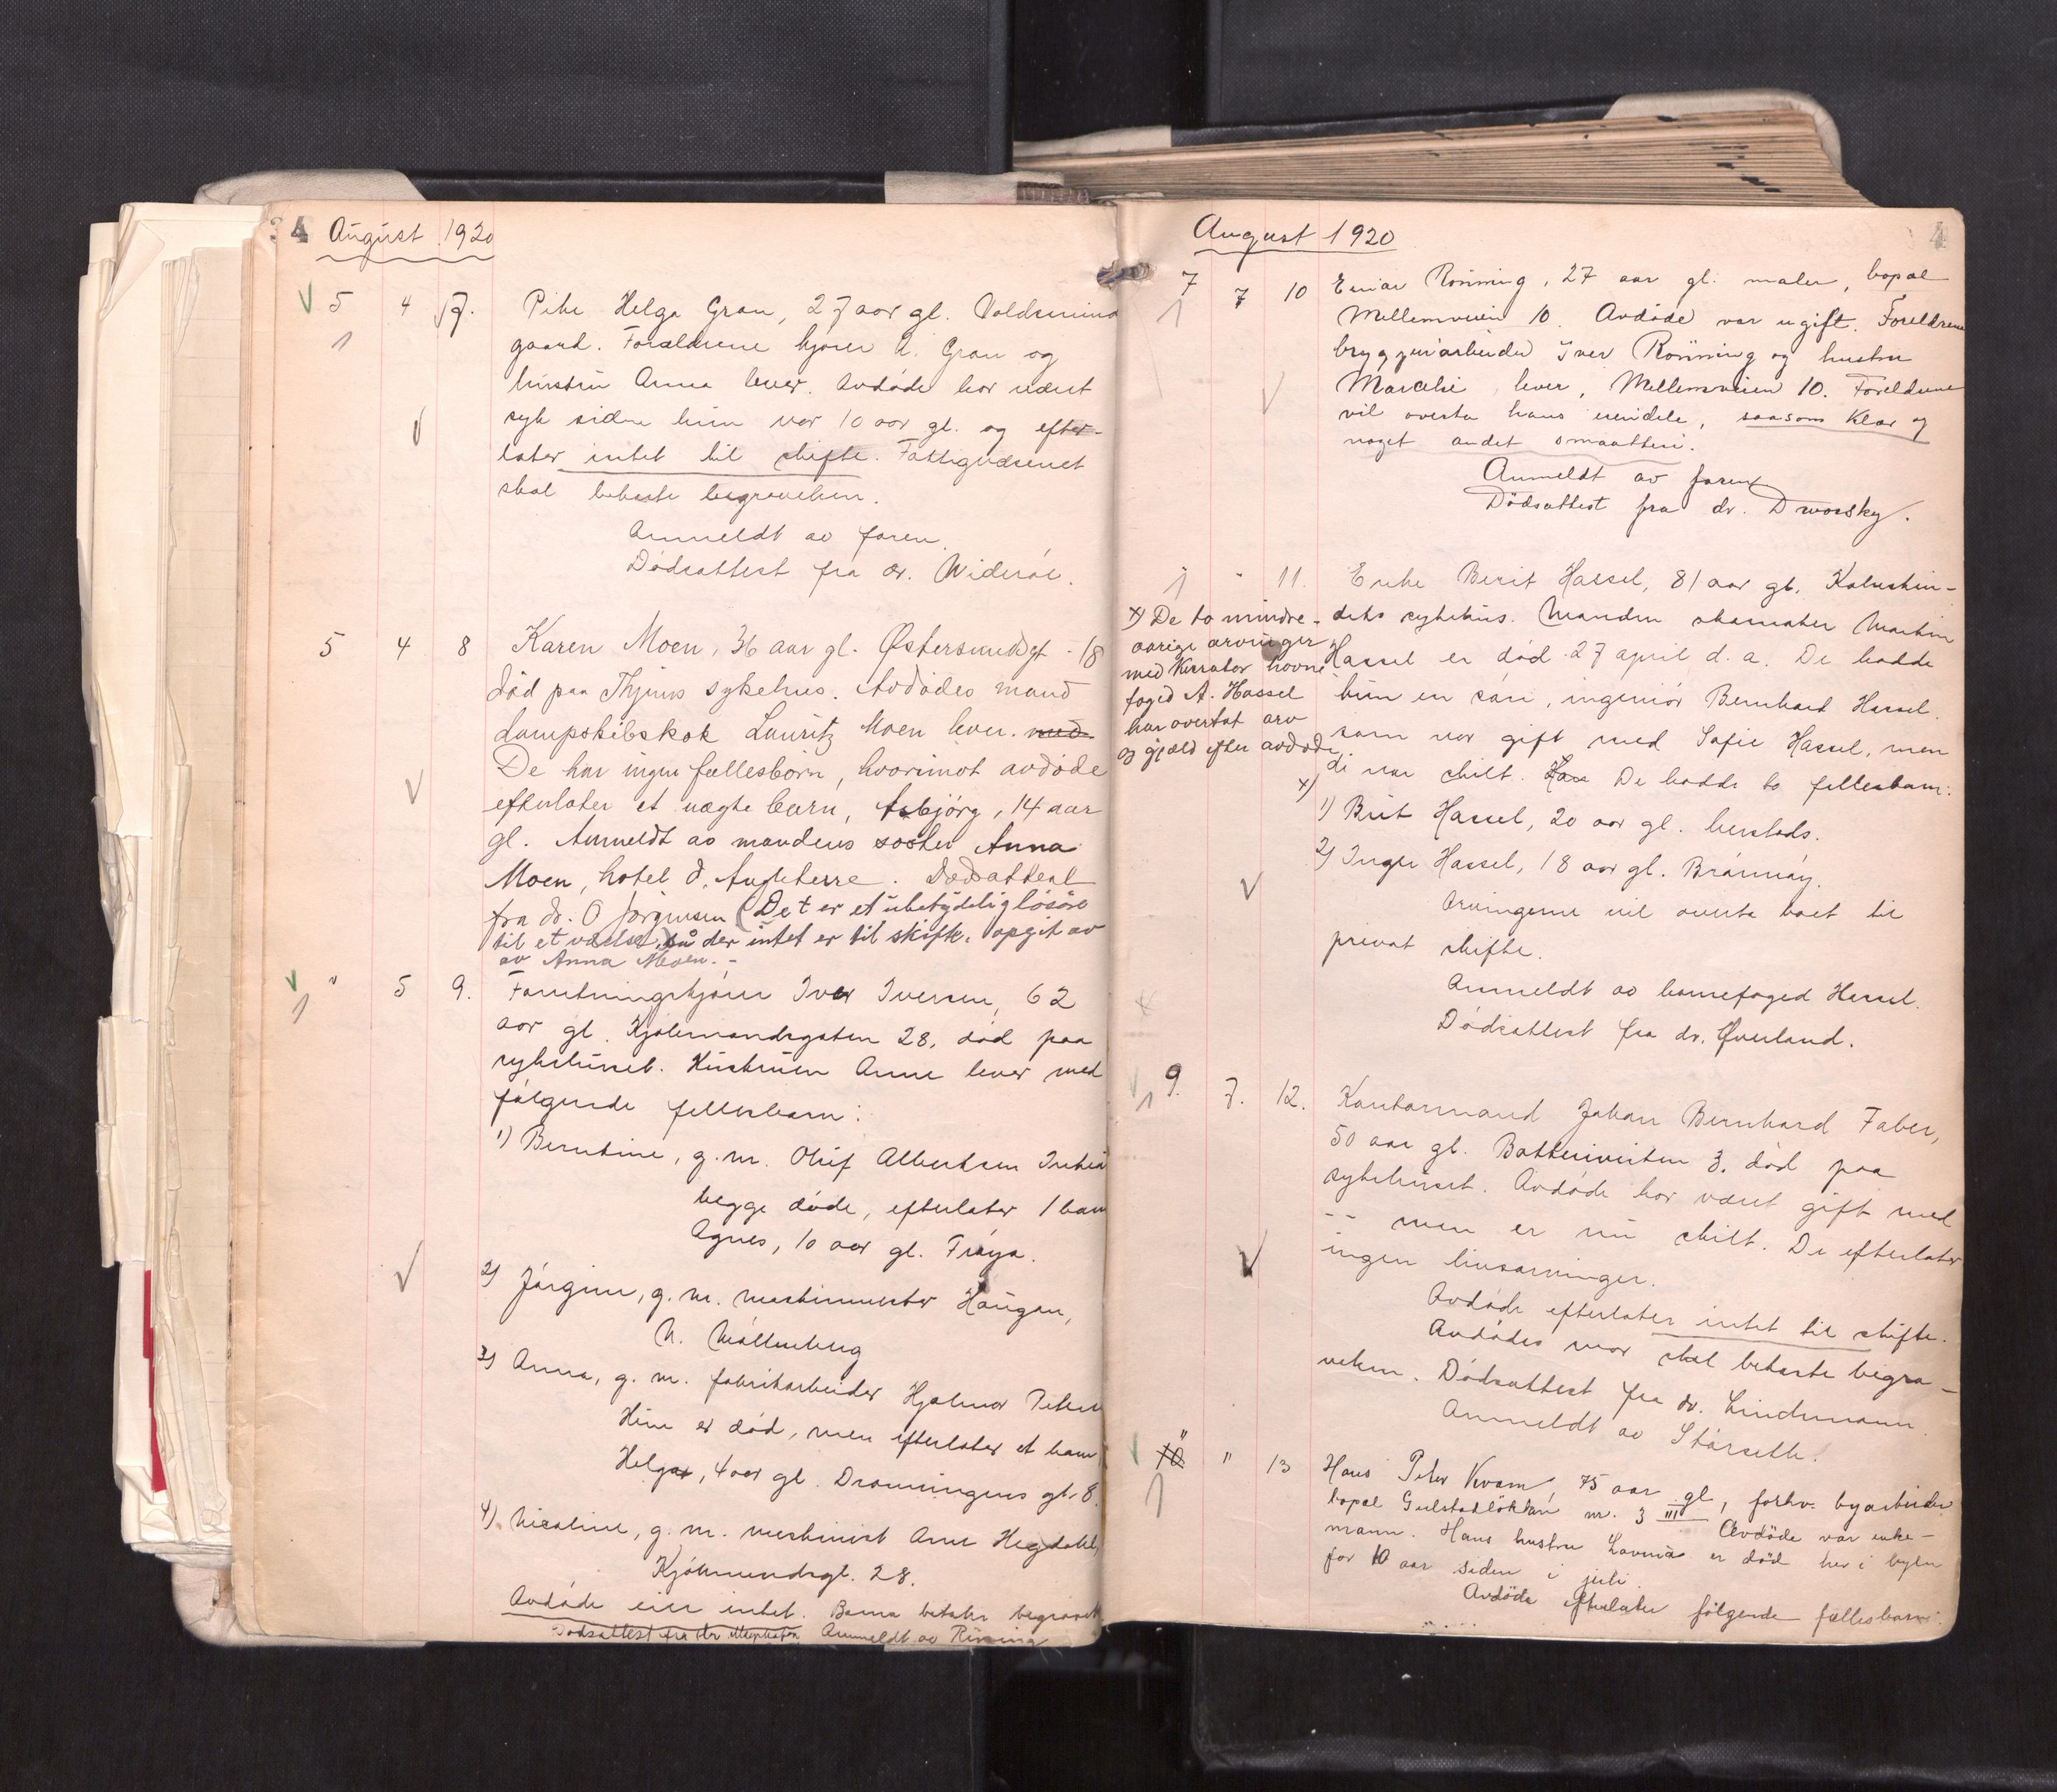 4 August 1920
5 4 7. Pike Helga Gran, 27 aar gl. Voldsminne
gaard. Forældrene kjører A. Gran og
hustru Anna lever. Avdøde har været
syk siden hun var 10 aar gl. og efter-
later intet til skifte. Fattigvæsenet
skal bekoste begravelsen.
Anmeldt av faren.
Dødsattest fra dr. Widerøe.
5 4 8 Karen Moen, 36 aar gl. Østersundsgt. 18
død paa Thjims sykehus. Avdødes mand
dampskibskok Lauritz Moen lever. med
De har ingen fællesbörn, hvorimot avdøde
efterlater et uægte barn, Asbjörg, 14 aar
gl. Anmeldt av mandens søster Anna
Moen, hotel d. Angleterre. Dødsattest
fra dr. O Jørgensen (Det er et ubetydelig løsøre
til et værelse) så der intet er til skifte. opgit av
av Anna Moen. -
" 5 9. Forretningskjører Iver Iversen, 62
aar gl. Kjøbmandsgaten 28, død paa
sykehuset. Hustruen Anne lever med
følgende fellesbarn:
1) Berntine, g. m. Oluf Albertsen
begge døde, efterlater 1 barn
Agnes, 10 aar gl. Frøya.
2) Jørgine, g. m. maskinmester Haugan,
N. Møllenberg
3) Anna, g. m. fabrikarbeider Hjalmar
Hun er død, men efterlater et barn
Helga, 4 aar gl. Dronningens gt. 8.
4) Nicoline, g. m. maskinist Arne Hegdahl,
Kjøbmandsgt. 28.
Avdøde eier intet. Barna betaler begravel
Dødsattest fra dr. Anmeldt av
August 1920 4
7 7 10 Einar Rönning, 27 aar gl. maler, bopæl
Mellemveien 10. Avdøde var ugift. Foreldrene
bryggeriarbeider Iver Rönning og hustru
lever, Mellemveien 10. Foreldrene
vil overta hans eiendele, saasom klær og
noget andet smaatteri.
Anmeldt av faren
Dödsattest fra dr. Dworsky.
" 11. Enke Berit Hassel, 81 aar gl. Kalvskin-
dets sykehus. Manden skomaker Martin
Hassel er død 27 april d. a. De hadde
kun en søn, ingeniør Bernhard Hassel
som var gift med Sofie Hassel, men
di var skilt. De hadde to fellesbarn:
x) De to mindre-
aarige arvinger
med kurator havne
foged A. Hassel
har overtat arv
og gjæld efter avdøde.
x)
1) Brit Hassel, 20 aar gl. hersteds.
2) Inger Hassel, 18 aar gl. Brønnøy.
Arvingerne vil overta boet til
privat skifte.
Anmeldt av havnefoged Hassel.
Dødsattest fra dr. Øverland.
9. 7. 12. Kontormand Johan Bernhard Faber,
50 aar gl. Batteriveiten 3. død paa
sykehuset. Avdøde har været gift med
-- men er nu skilt. De efterlater
ingen livsarvinger.
Avdøde efterlater intet til skifte.
Avdødes mor skal bekoste begra-
velsen. Dødsattest fra dr. Lindemann.
Anmeldt av Størseth.
10 " " 13 Hans Peter Kvam, 75 aar gl, forhv. byarbeider
bopæl nr. 3 III Avdöde var enke-
mann. Hans hustru Lovina er död her i byen
for 10 aar siden i juli.
Avdöde efterlater følgende fællesbarn: